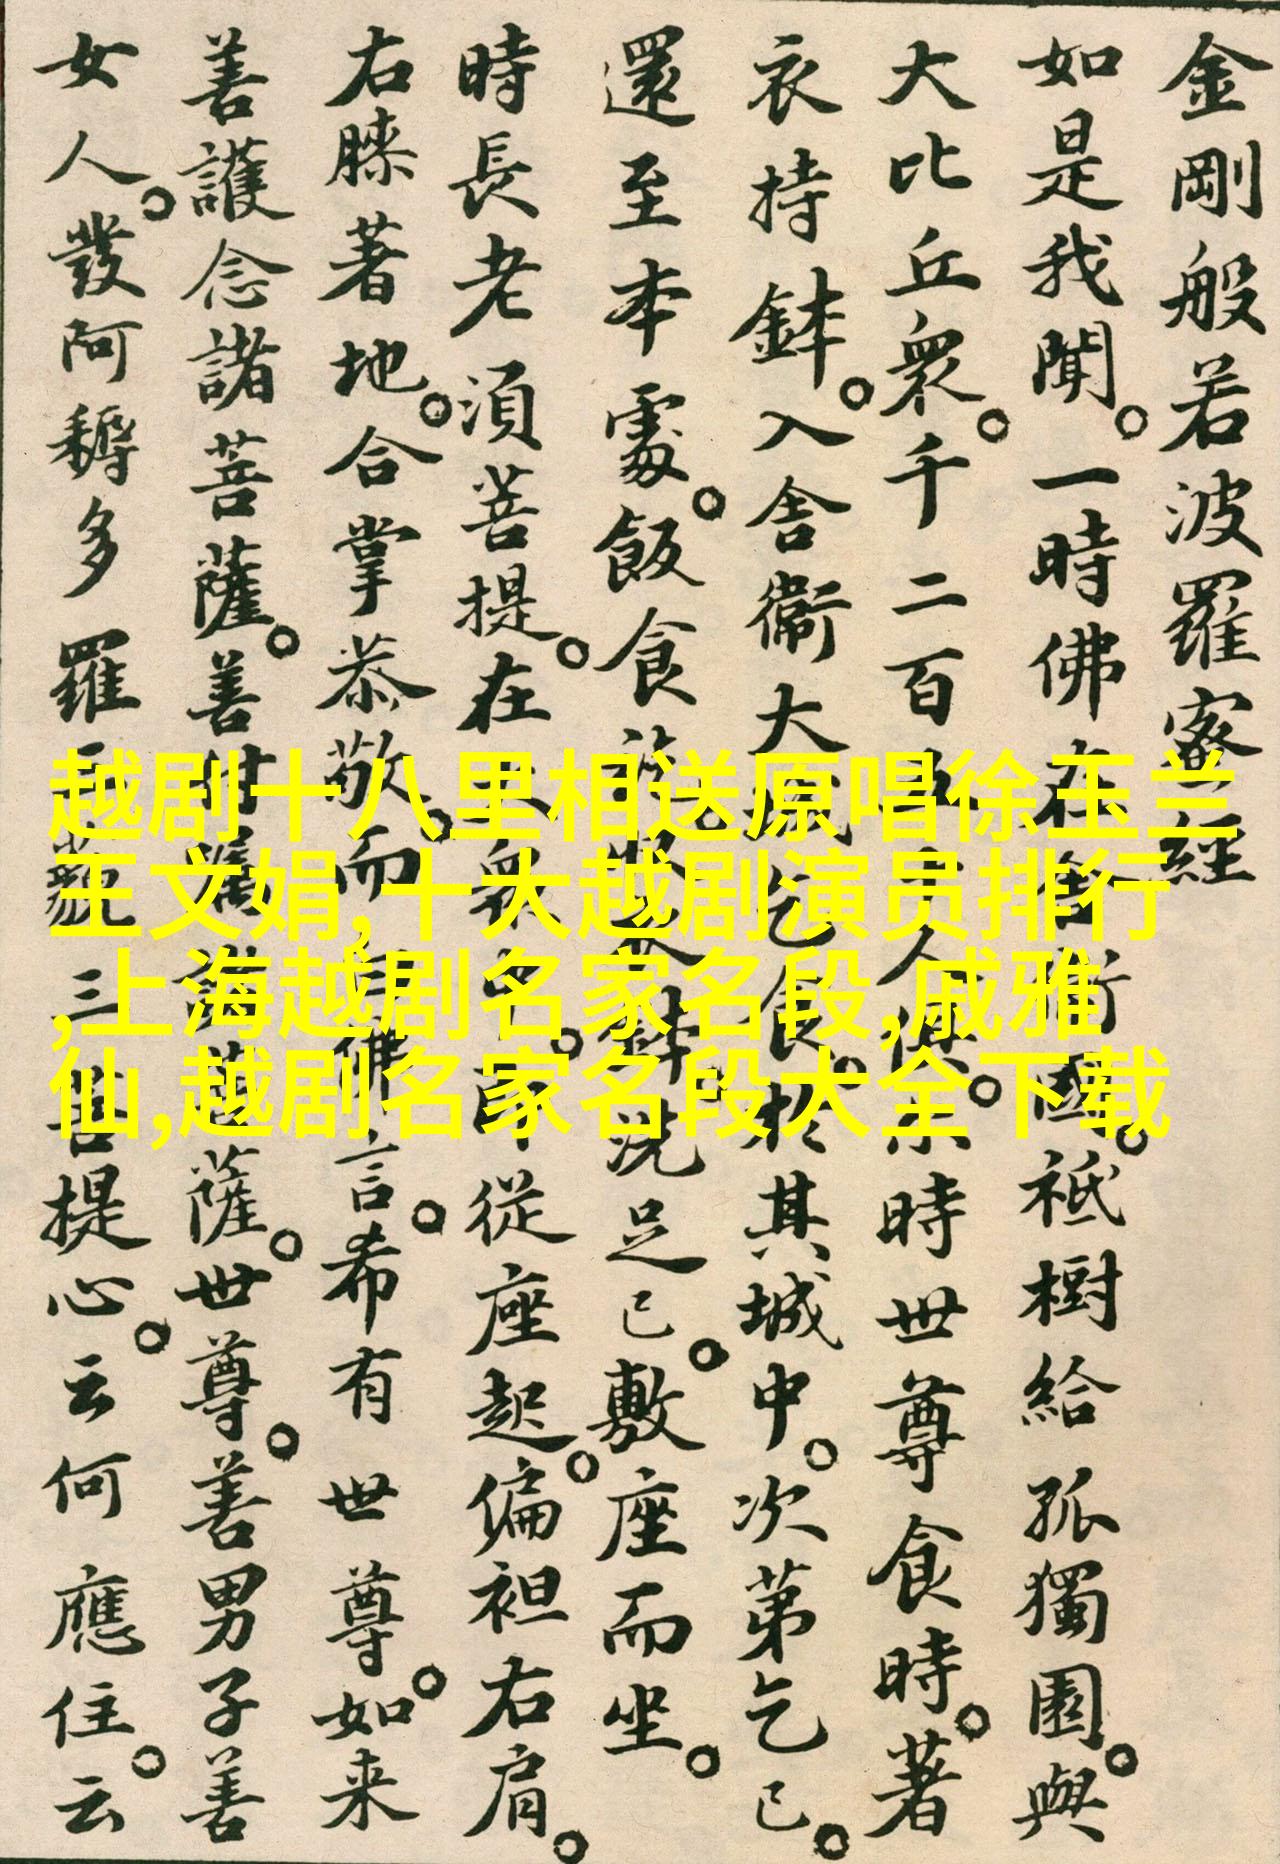 金剛般若波羅蜜經
如是我聞。一時佛在舍衛國。祇樹給孤獨園。與
大比丘衆。千二百五十人俱。尒時世尊食時。著
衣持鉢。入舍衛大城乞食。於其城中。次第乞已。
還至本處。飯食訖。收衣鉢。洗足已。敷座而坐。
時長老湏菩提。在大衆中。即從座起。偏袒右肩。
右膝著地。合掌恭敬。而白佛言。希有世尊。如来
善護念諸菩薩。善付囑諸菩薩。世尊。善男子善
女人。發阿耨多羅三藐三菩提心。云何應住。云
越剧十八里相送原唱徐玉兰
王文娟,十大越剧演员排行
,上海越剧名家名段,戚雅
仙,越剧名家名段大全下载